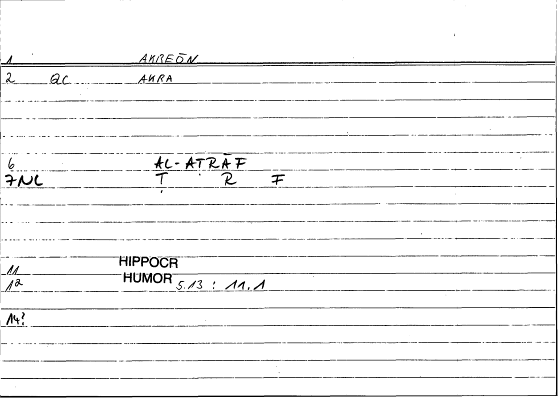 1 AKREŌN
2 QC AKRA
6 AL-AṬRĀF
7NL Ṭ R F
11 HIPPOCR
12 HUMOR 5.13 : 11.1
14?